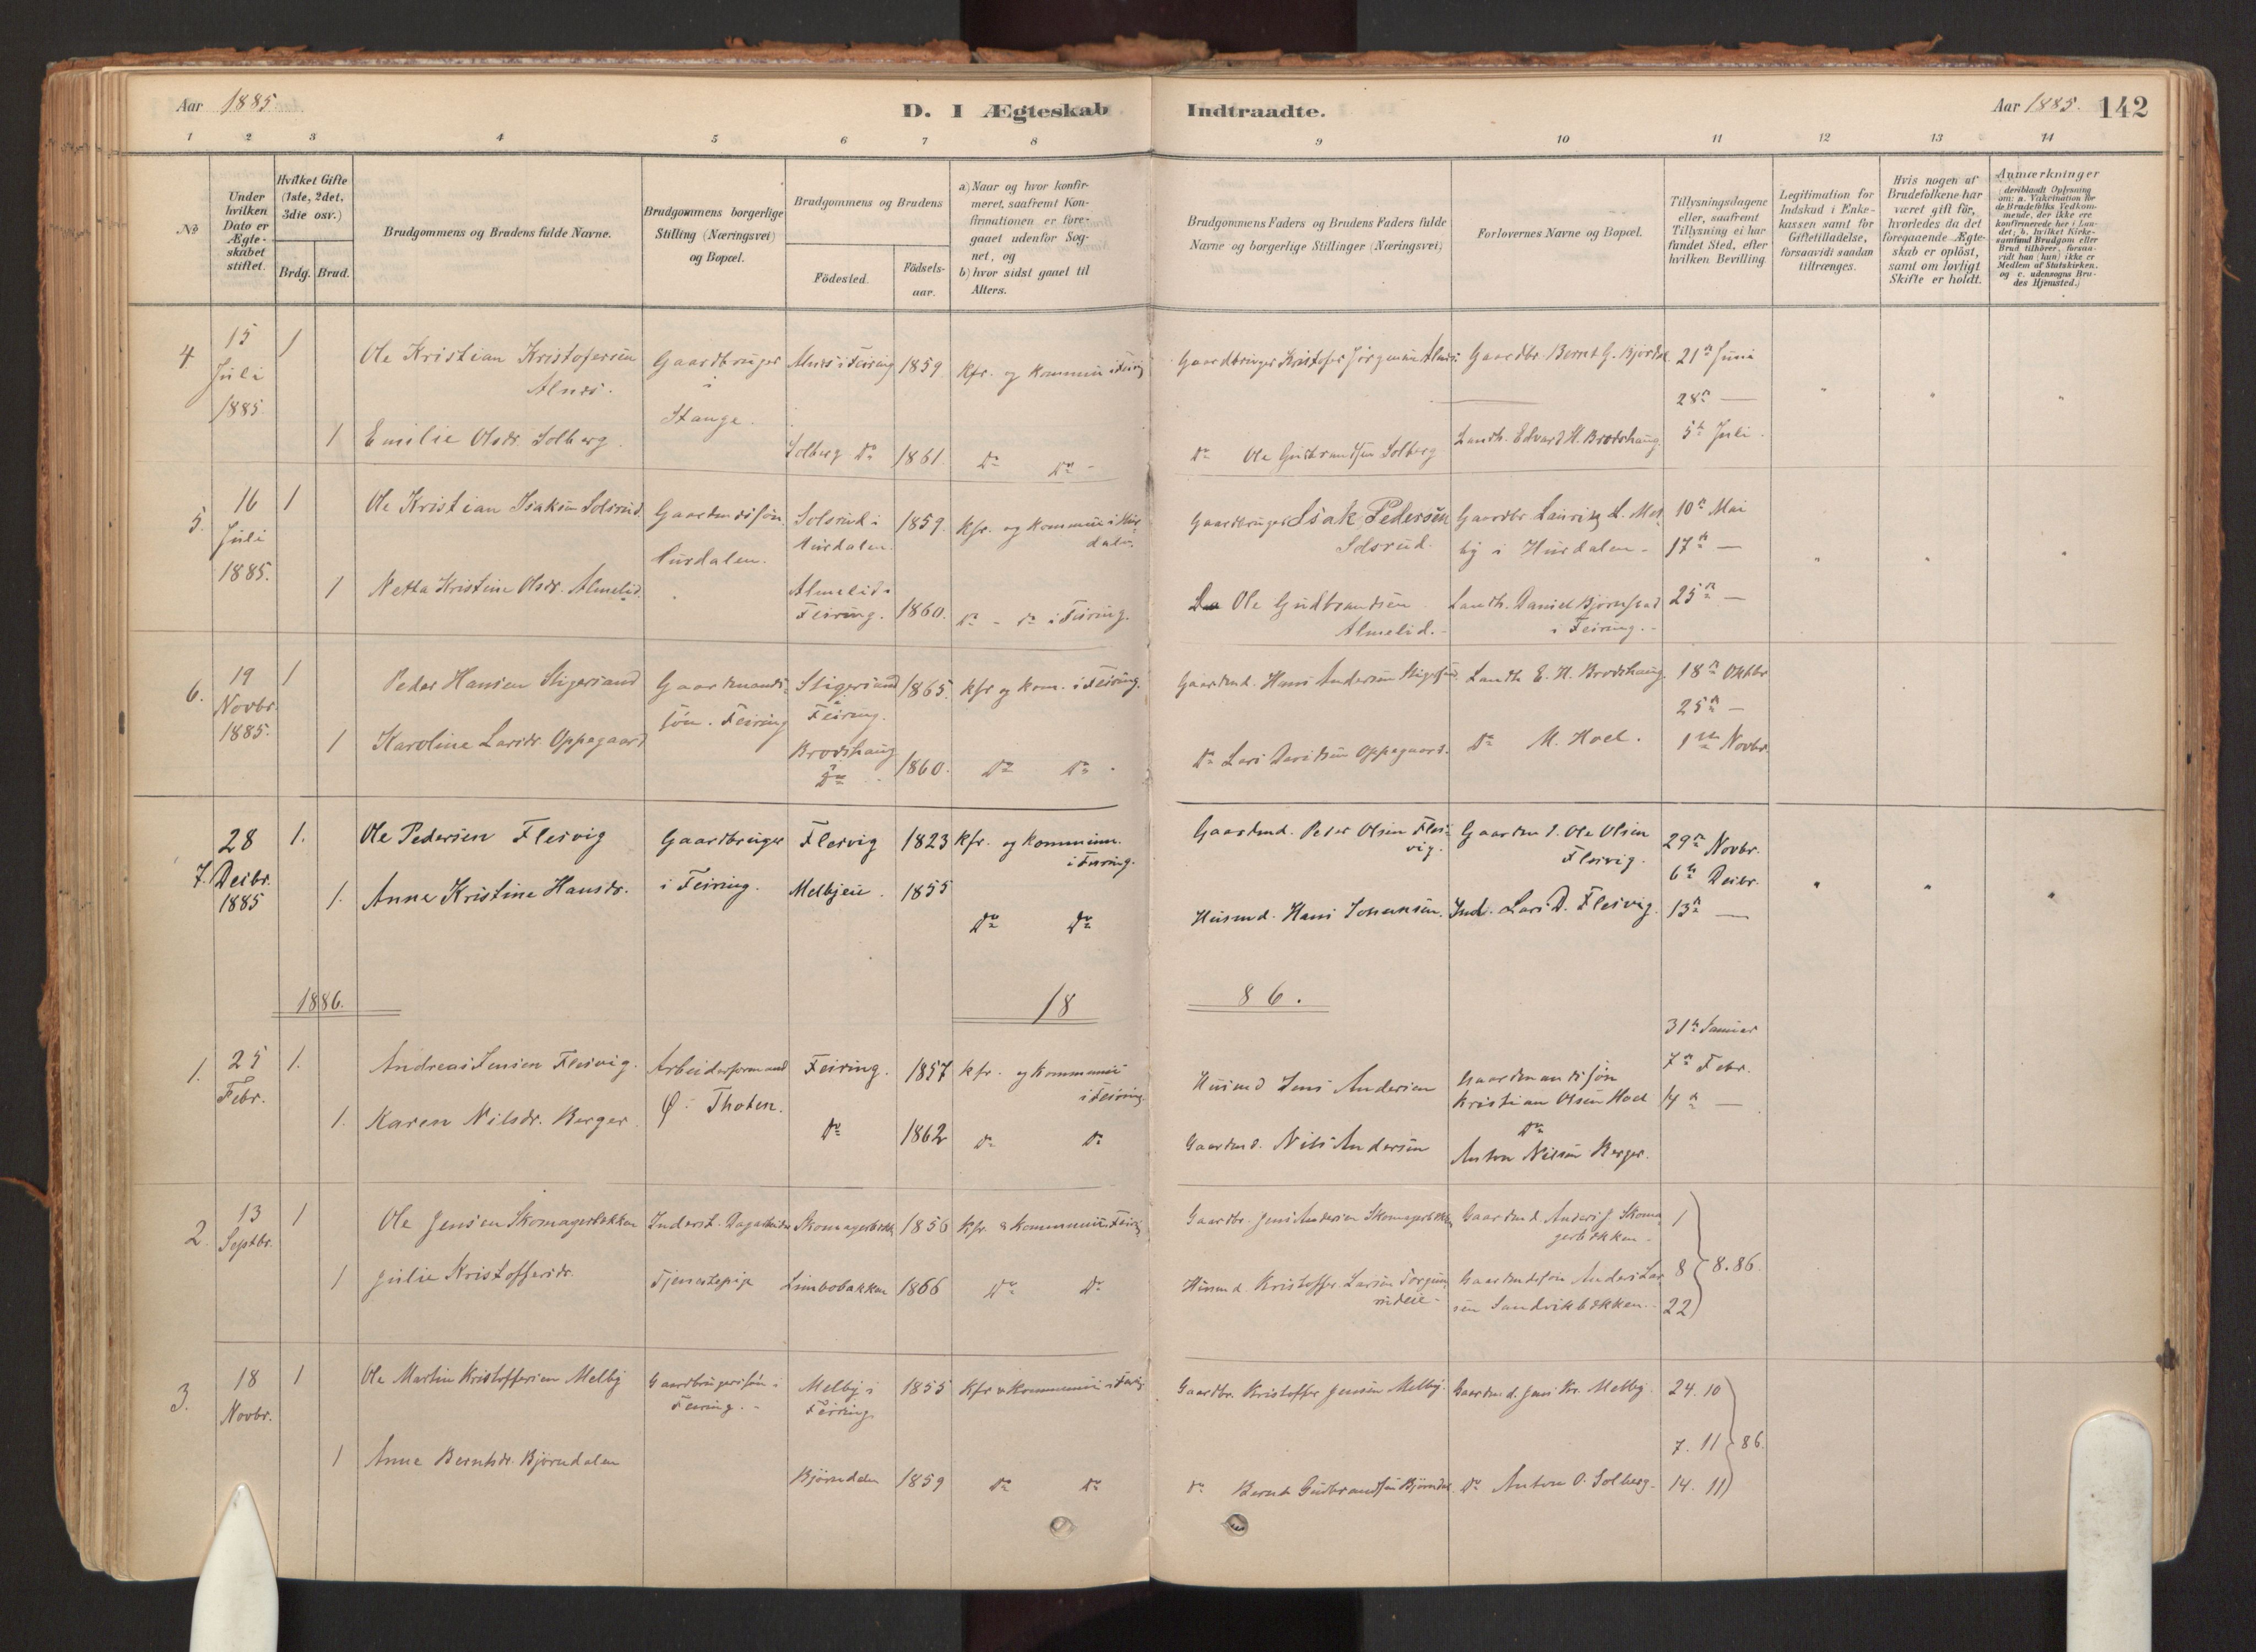 Aar 1885
D. I Ægteskab Indtraadte.
Aar 1885. 142
1 2 3 4 5 6 7 8 9 10 11 12 13 14
No
Under hvilken Dato er Ægteskabet stiftet.
Hvilket Gifte (1ste, 2det, 3die osv.)
Brdg. Brud.
Brudgommens og Brudens fulde Navne.
Brudgommens borgerlige Stilling (Næringsvei) og Bopæl.
Brudgommens og Brudens
Födested.
Födsels-aar.
a) Naar og hvor konfirmeret, saafremt Konfirmationen er foregaaet udenfor Sognet, og
b) hvor sidst gaaet til Alters.
Brudgommens Faders og Brudens Faders fulde Navne og borgerlige Stillinger (Næringsvei)
Forlovernes Navne og Bopæl.
Tillysningsdagene eller, saafremt Tillysning ei har fundet Sted, efter hvilken Bevilling
Legitimation for Indskud i Enkekassen samt for Giftetilladelse, forsaavidt saadan tiltrænges.
Hvis nogen af Brudefolkene har været gift för, hvorledes da det foregaaende Ægteskab er oplöst, samt om lovligt Skifte er holdt.
Anmærkninger (deriblandt Oplysning om: a. Vakcination for de Brudefolks Vedkommende, der ikke ere konfirmerede her i Landet; b. hvilket Kirkesamfund Brudgom eller Brud tilhörer, forsaavidt han (hun) ikke er Medlem af Statskirken. og c. udensogns Brudes Hjemsted.)
4 15 Juli 1885 1 Ole Kristian Kristofersen Alnes. Gaardbruger i Stange. Alnes i Feiring 1859 Kfr. og kommun i Feiring Gaardbruger Kristofer Jörgensen Alnes Gaardbr. Bernt G. Bjørndal 21n Juni
28n —
1 Emilie Olsdr. Solberg Solberg Do 1861. Do Do - Do Ole Gudbrandsen Solberg Landh. Edvard H. Brodshaug 5te Juli.
5. 16 Juli 1885. 1 Ole Kristian Isaksen Solsrud Gaardmdssön. Hurdalen. Solsrud i Hurdalen 1859. Kfr. og kommun i Hurdalen. Gaardbruger Isak Pedersen Solsrud. Gaardbr. Lauritz L. Mosby i Hurdalen - 10n Mai
17n —
1 Netta Kristine Olsdr. Almelid. Almelid i Feiring. 1860. Do - Do i Feiring. Do Ole Gudbrandsen Almelid. - Landh. Daniel Bjørnstad i Feiring. - 25n —
6. 19 Novbr. 1885. 1 Peder Hansen Stigersand Gaardmandssön. Feiring Stigersand Feiring. 1865. Kfr og kom. i Feiring. Gaardmd. Hans Andersen Stigersand Landh. E. H. Brodshaug. 18n Oktbr
25n —
1 Karoline Larsdr. Oppegaard Brodshaug Do 1860. Do Do - Do Lars Davidsen Oppegaard. Do M. Hoel. 1ste Novbr
7. 28 Decbr. 1885 1. Ole Pedersen Flesvig Gaardbruger i Feiring. Flesvig 1823 Kfr. og kommun. i Feiring. Gaardmd. Peder Olsen Flesvig. Gaardmd. Ole Olsen Flesvig. 29n Novbr.
6te Decbr.
1. Anne Kristine Hansdr. Melbyeie. 1855 Do Do Husmd. Hans Johansen. Ind. Lars D. Flesvig. 13n —
1886. 18 86.
31te Januar
1. 25 Febr. 1. Andreas Jensen Flesvig. Arbeiderformand Ø. Thoten. Feiring. 1857 Kfr. og kommun i Feiring. Husmd Jens Andersen Gaardmandssøn Kristian Olsen Hoel 7n Febr.
14n —
1. Karen Nilsdr. Berger. Do 1862 Do Do Gaardmd. Nils Andersen Do Anton Nilsen Berger.
2. 13 Septbr. 1 Ole Jensen Skomagerbækken Inderst. Dagarbeider Skomagerbækk 1856 Kfr. & kommun i Feiring Gaardbr. Jens Andersen Skomagerbækken Gaardmd. Anders J. Skomagerbækken - 1
1 Julie Kristoffersdr. Tjenestepige Limbobakken 1866 Do Do Husmd. Kristoffer Larsen Torgunrudeie - Gaardmdssøn Anders Larsen Sandvikbækken. 8
22 } 8. 86.
3. 18 Novbr. 1 Ole Martin Kristoffersen Melby Gaardbrugerssøn i Feiring. - Melby i Feiring. 1855 Kfr & kommun i Feiring Gaardbr. Kristoffer Jensen Melby. Gaardmd. Jens Kr. Melby. 24. 10
7. 11 } 86.
1 Anne Berntsdr. Bjørndalen Bjørndalen 1859 Do Do Do Bernt Gudbrandsen Bjørndal Do Anton O. Solberg - 14. 11